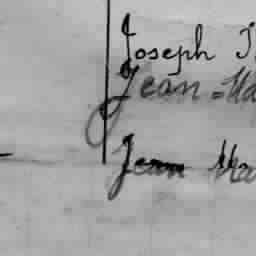 Joseph
Jean-Ma
Jean Ma